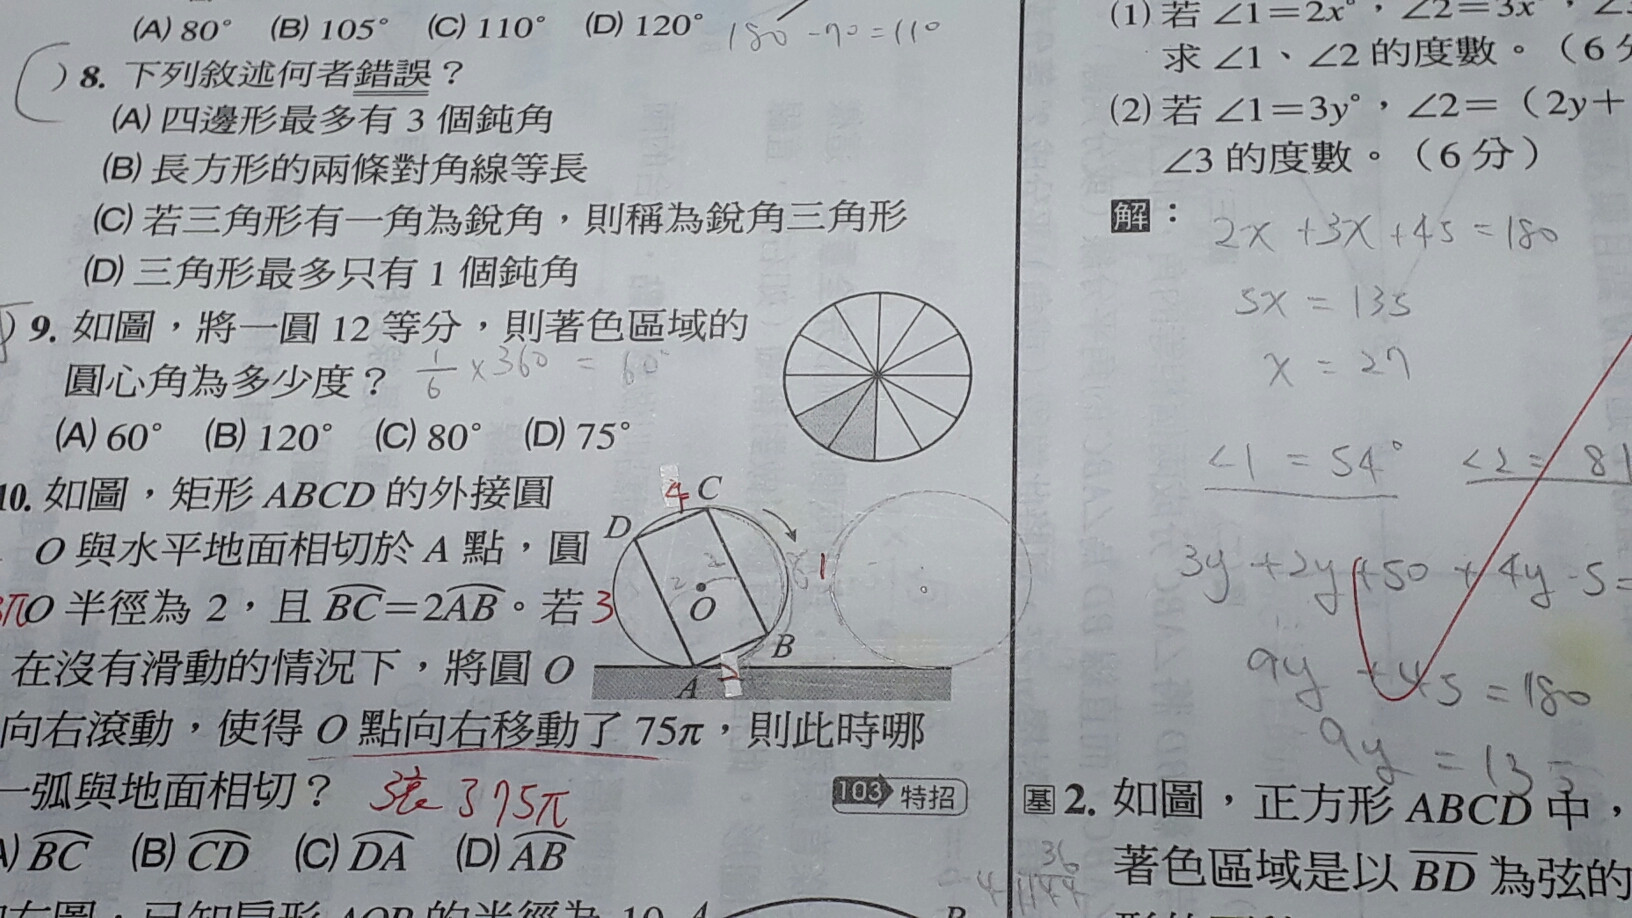 (A) 80° (B) 105° (C) 110° (D) 120° 180-70=110
)8. 下列敘述何者錯誤？
(A) 四邊形最多有 3 個鈍角
(B) 長方形的兩條對角線等長
(C) 若三角形有一角為銳角，則稱為銳角三角形
(D) 三角形最多只有 1 個鈍角
) 9. 如圖，將一圓 12 等分，則著色區域的
圓心角為多少度？ 1/6 ×360 = 60°
(A) 60° (B) 120° (C) 80° (D) 75°
10. 如圖，矩形 ABCD 的外接圓
O 與水平地面相切於 A 點，圓
O 半徑為 2，且 BC=2AB。若
在沒有滑動的情況下，將圓 O
向右滾動，使得 O 點向右移動了 75π，則此時哪
一弧與地面相切？ 滾了75π
A) BC (B) CD (C) DA (D) AB
103 特招
4 C
D
2 2
O
3
1
B
A
(1) 若 ∠1=2x°，∠2=3x°，
求 ∠1、∠2 的度數。（6
(2) 若 ∠1=3y°，∠2=（2y+
∠3 的度數。（6 分）
解：
2x +3x +45 =180
5x = 135
x = 27
∠1 = 54° ∠2 = 81
3y +2y +50 + 4y -5=
9y +45 =180
9y = 135
基 2. 如圖，正方形 ABCD 中，
著色區域是以 BD 為弦的
36
4 144